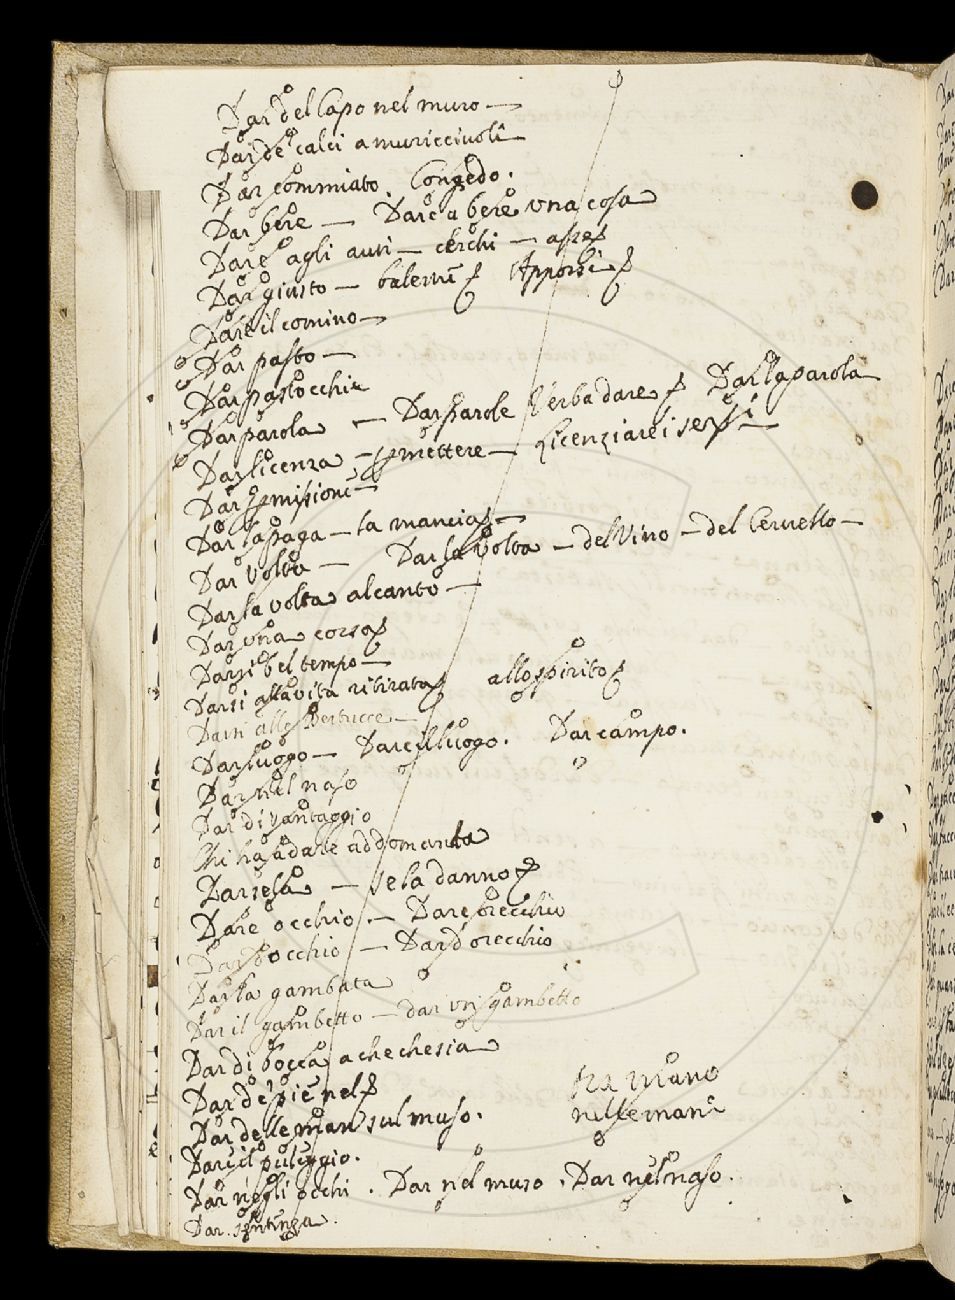 Dar del Capo nel muro —
Dar de calci a muricciuoli —
Dar commiato. Congedo.
Dar bere — Dare a bere una cosa
Dare agli auri — cerchi —
Dar giusto —
Dare il comino —
Dar pasto —
Dar pastocchie
Dar parola — Dar parole Verba dare Dar la parola
Dar licenza — pmettere — Licenziare i sensi —
Dar pmisione —
Dar la paga — la mancia —
Dar Volta — Dar la Volta — del Vino — del Cervello —
Dar la volta al canto —
Dar una corsa
Darsi bel tempo —
Darsi alla vita ritirata allo spirito
Darsi alle Bertucce —
Dar luogo — Darc il luogo. Dar campo.
Dar nel naso
Dar di vantaggio
Chi ha a dare addomanda
Darsela — se la danno
Dare occhio — Dare orecchio
Dar d'occhio — Dar d'orecchio
Dar la gambata
Dar il gambetto — dar un gambetto
Dar di bocca a che chesia
Dar de pie nel tra mano
Dar delle man sul muso. nelle mani
Dare il puleggio.
Dar negli occhi. Dar nel muso. Dar nel naso.
Dar sentenza.